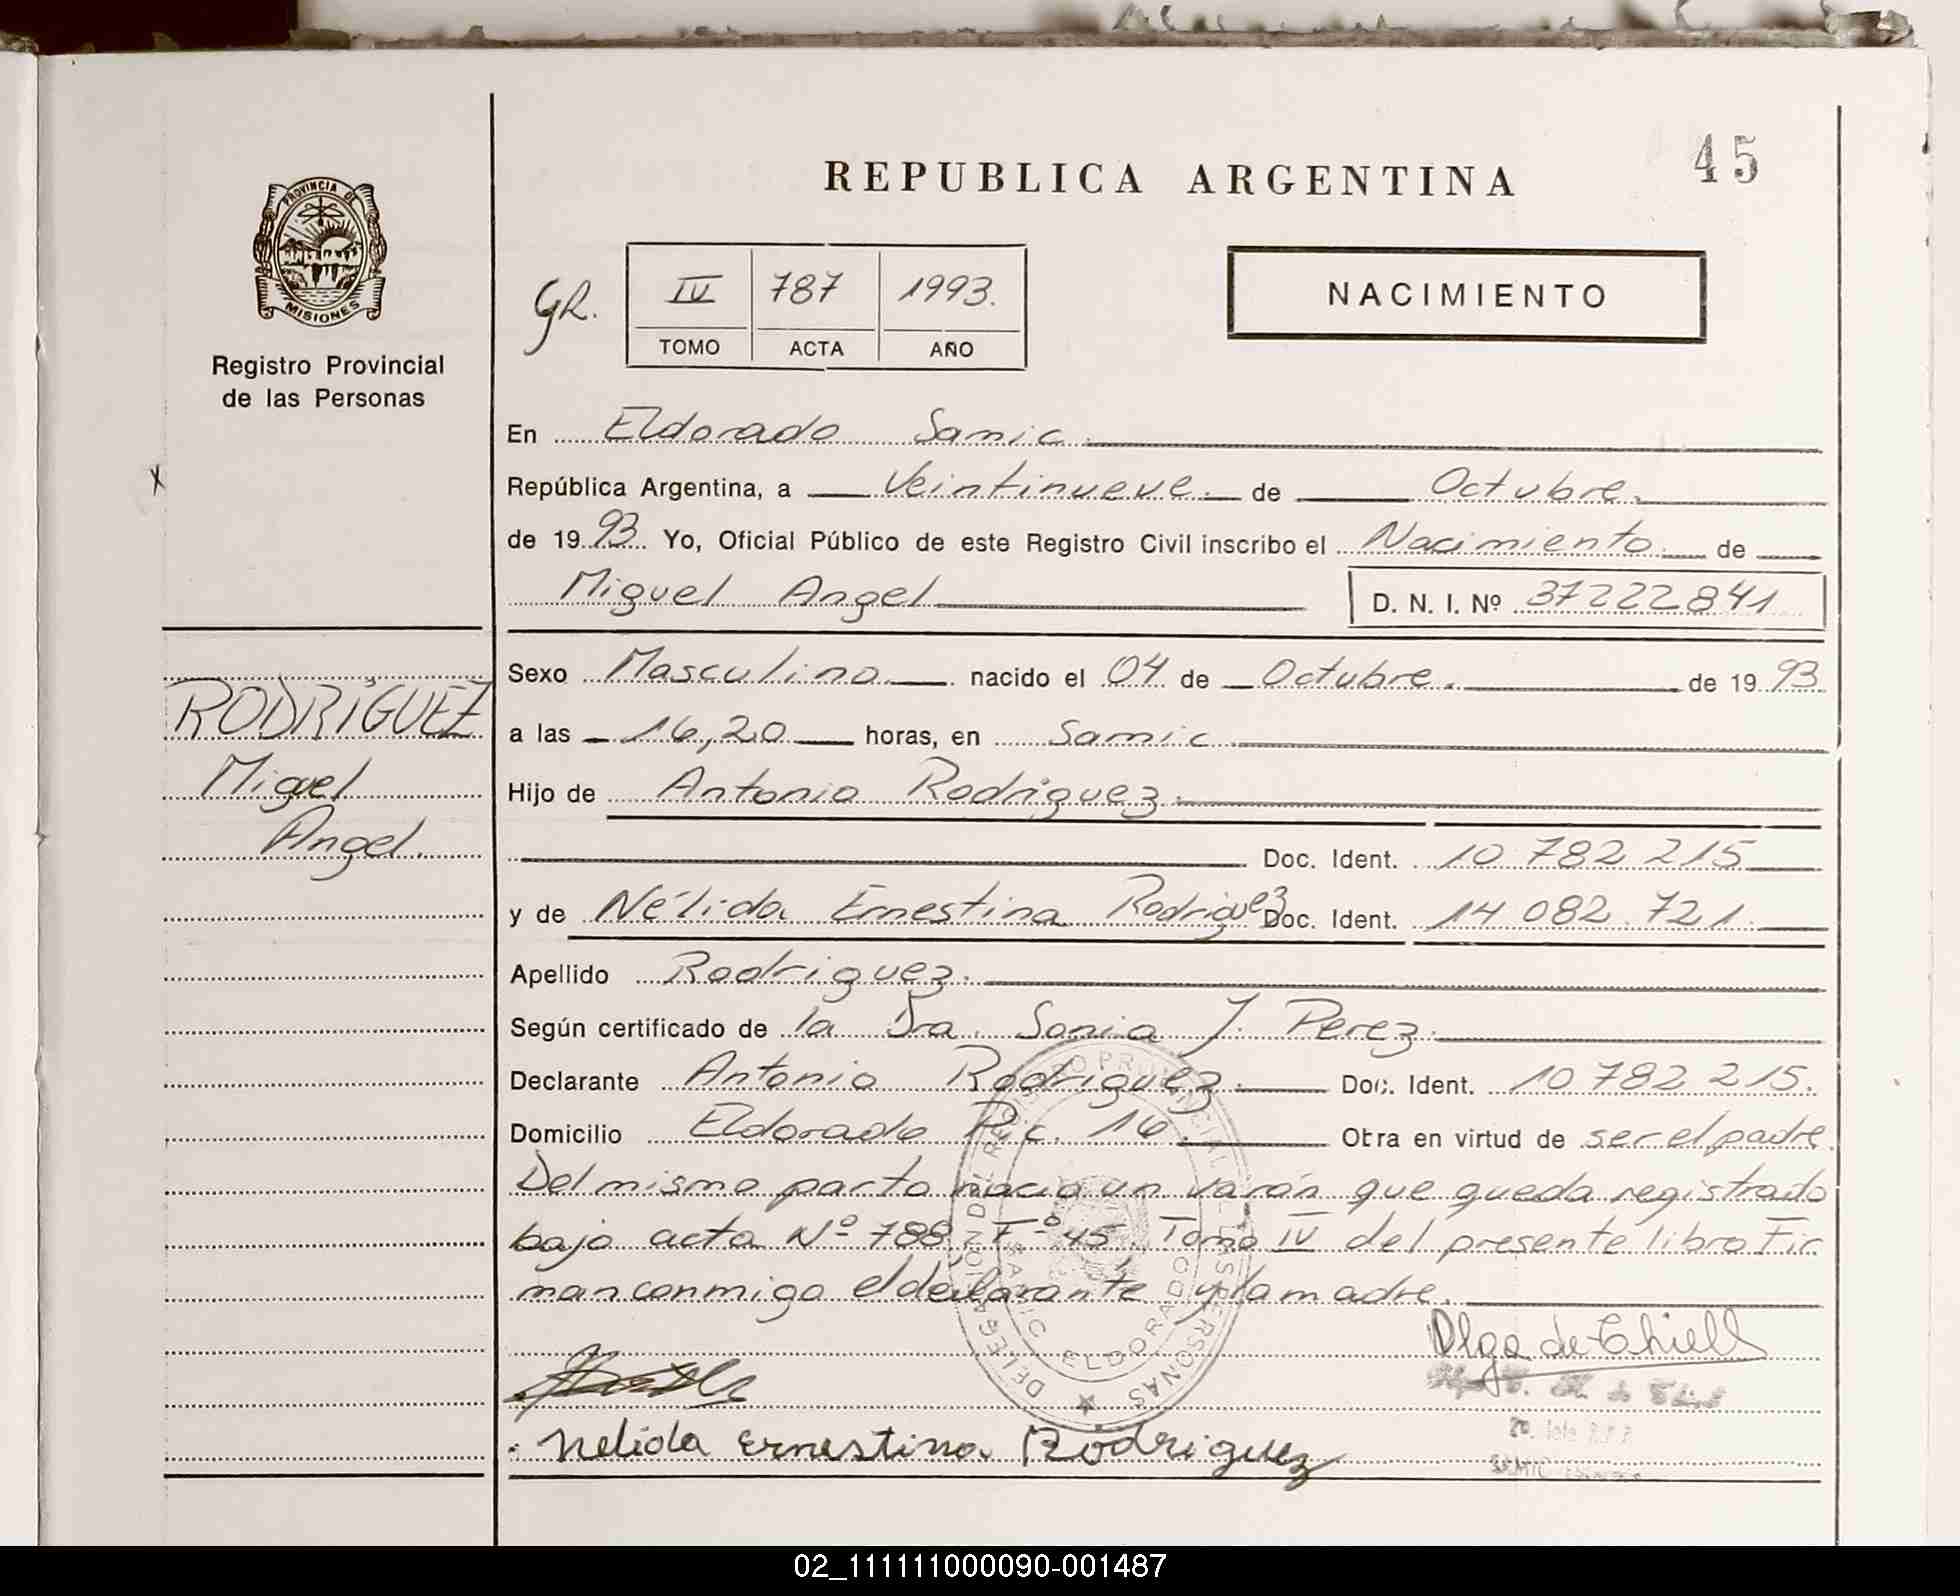 45
REPUBLICA ARGENTINA
PROVINCIA DE
MISIONES
Registro Provincial
de las Personas
GR. IV 787 1993.
TOMO ACTA AÑO
NACIMIENTO
En Eldorado Samic.
República Argentina, a Veintinueve. de Octubre.
de 1993. Yo, Oficial Público de este Registro Civil inscribo el Nacimiento. de
Miguel Angel D. N. I. Nº 37222841
Sexo Masculino. nacido el 04 de Octubre. de 1993
RODRÍGUEZ
Miguel
Angel.
a las 16,20 horas, en Samic.
Hijo de Antonio Rodríguez.
Doc. Ident. 10 782 215
y de Nélida Ernestina Rodriguez Doc. Ident. 14 082. 721.
Apellido Rodriguez.
Según certificado de la Dra. Sonia J. Perez.
Declarante Antonio Rodriguez. Doc. Ident. 10 782 215.
Domicilio Eldorado Pic. 16. Otra en virtud de ser el padre.
Del mismo parto nacio un varón que queda registrado
bajo acta Nº 788 Fº 45 Tomo IV del presente libro Fir
man conmigo el declarante y la madre.
DELEGACION DEL REGISTRO PROVINCIAL DE LAS PERSONAS
SAMIC ELDORADO
Olga de Chiell
Nelida Ernestina Rodriguez
SAMIC
02_111111000090-001487